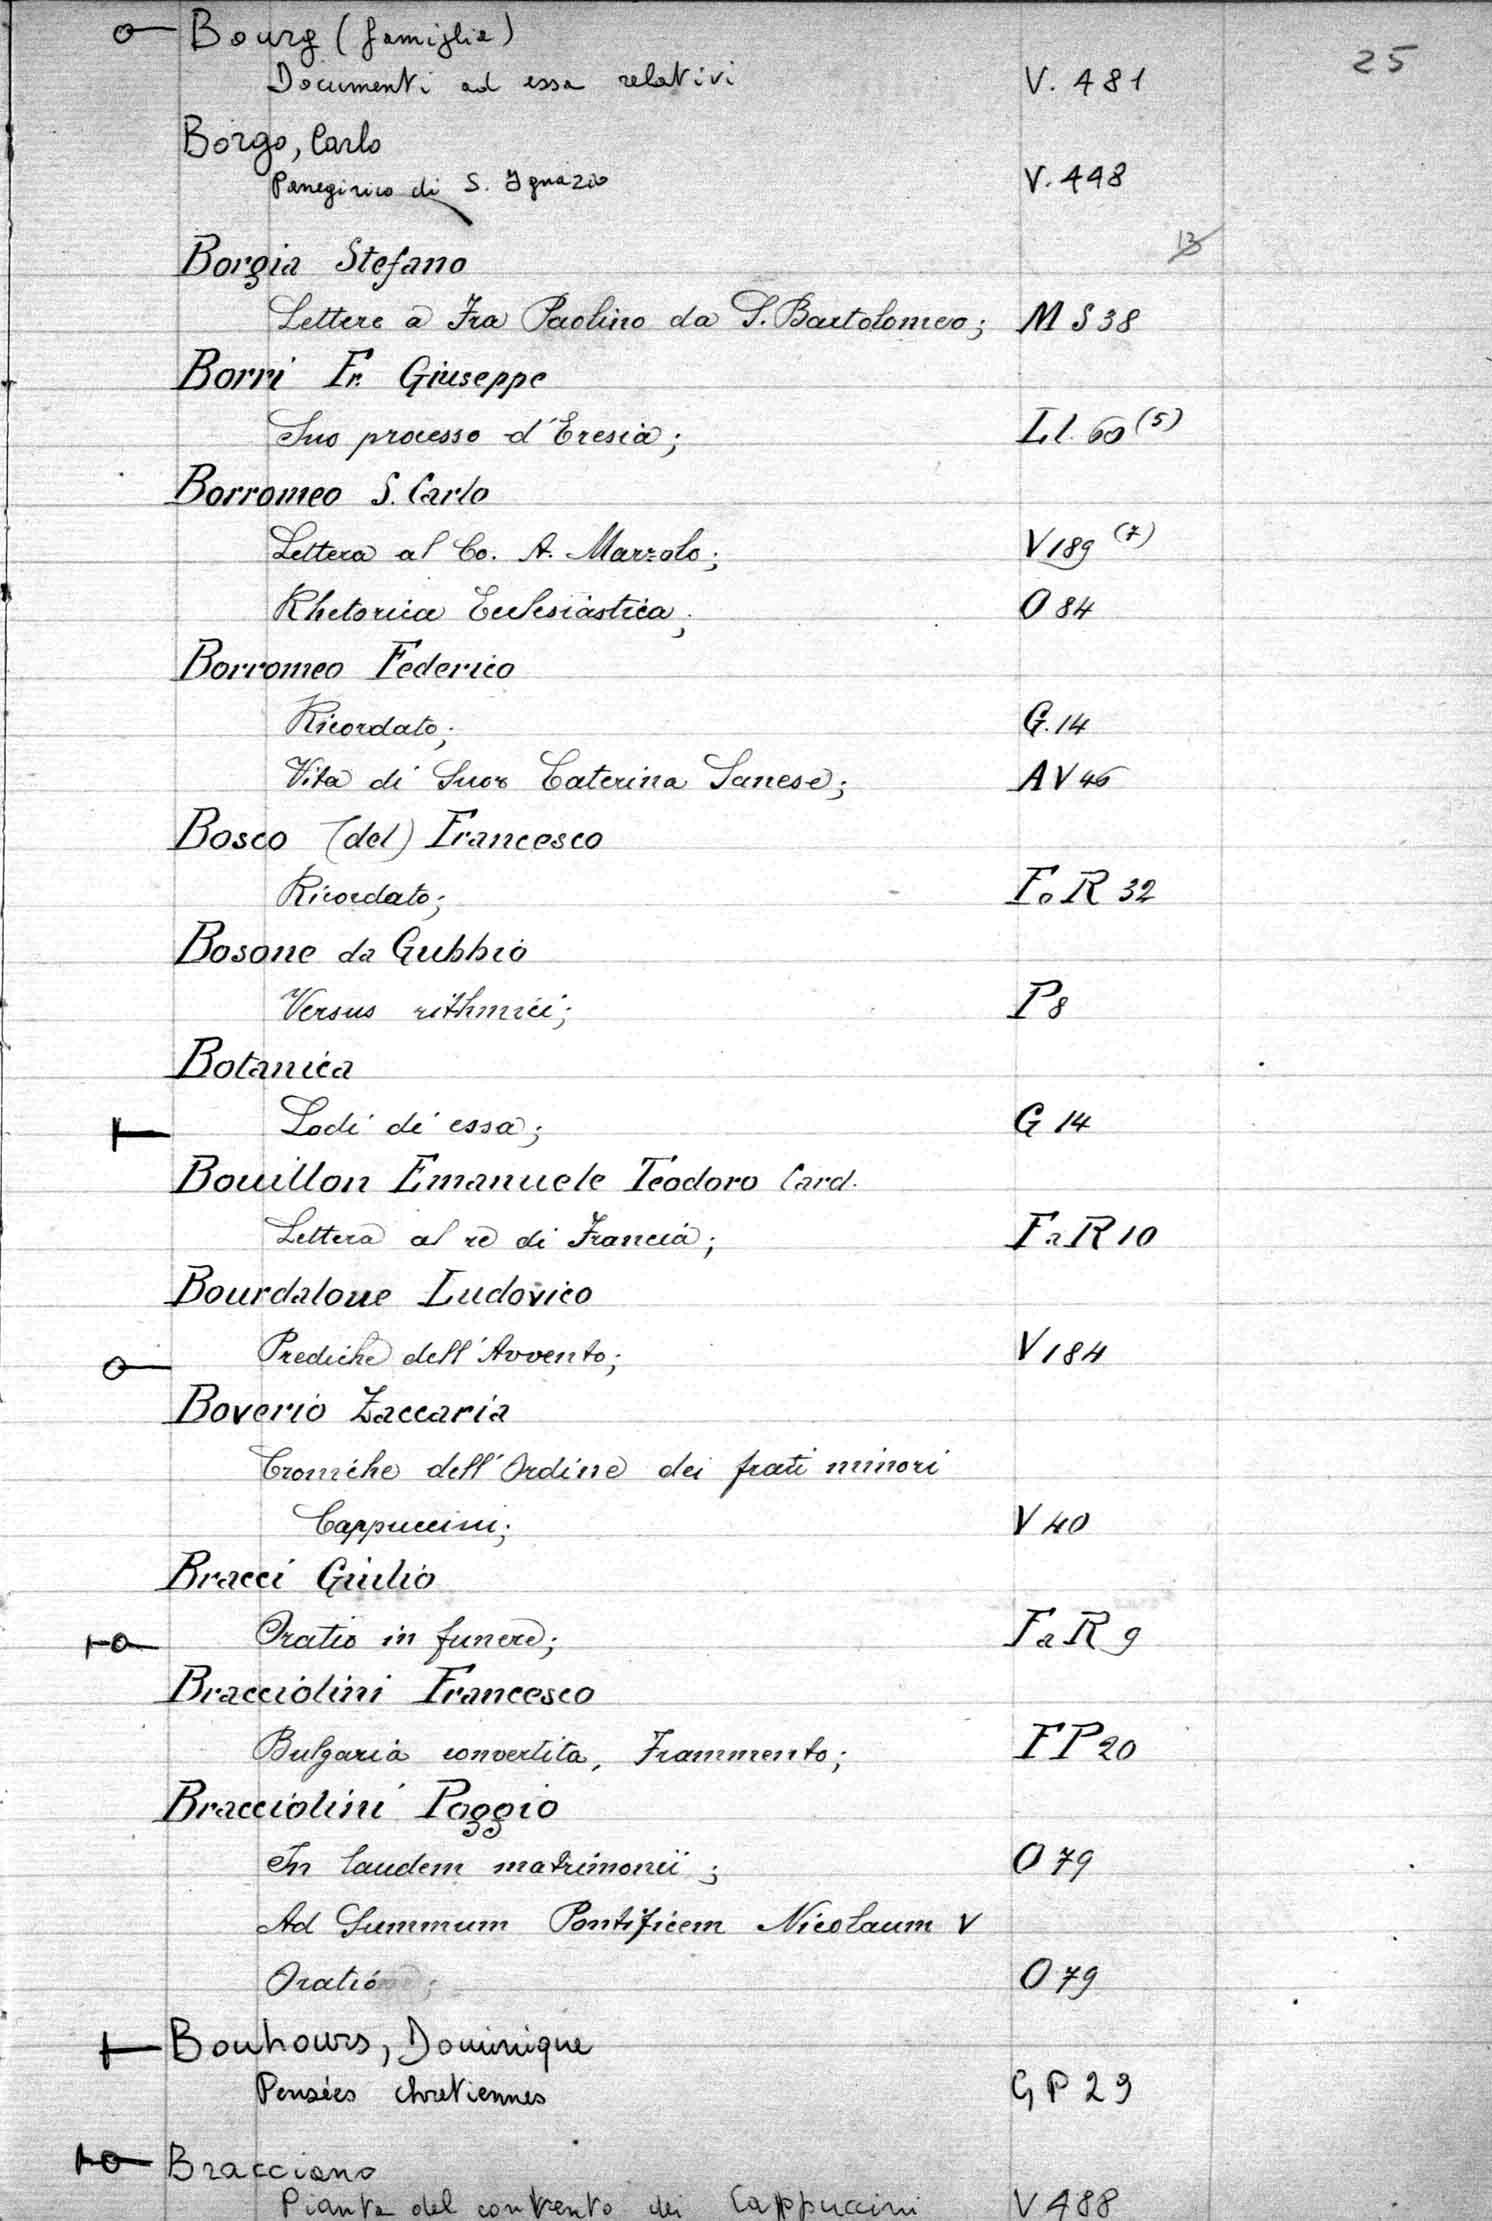 Bourg (famiglia)
25
Documenti ad essa relativi V. 481
Borgo, Carlo
Panegirico di S. Ignazio V. 448
13
Borgia Stefano
Lettere a Fra Paolino da S. Bartolomeo; M S 38
Borri Fr. Giuseppe
Suo processo d'Eresia; Ll. 60 (5)
Borromeo S. Carlo
Lettera al Co. A. Marzolo; V 189 (7)
Rhetorica Ecclesiastica; O 84
Borromeo Federico
Ricordato; G. 14
Vita di Suor Caterina Sanese; A V 46
Bosco (del) Francesco
Ricordato; Fo R 32
Bosone da Gubbio
Versus rithmici; P 8
Botanica
Lodi di essa; G 14
Bouillon Emanuele Teodoro Card.
Lettera al re di Francia; Fa R 10
Bourdaloue Ludovico
Prediche dell'Avvento; V 184
Boverio Zaccaria
Croniche dell'Ordine dei frati minori
Cappuccini; V 40
Bracci Giulio
Oratio in funere; Fa R 9
Bracciolini Francesco
Bulgaria convertita, Frammento; F P 20
Bracciolini Poggio
In laudem matrimonii; O 79
Ad Summum Pontificem Nicolaum V
Oratio; O 79
Bouhours, Dominique
Pensées chretiennes G P 29
Bracciano
Pianta del convento dei Cappuccini V 488